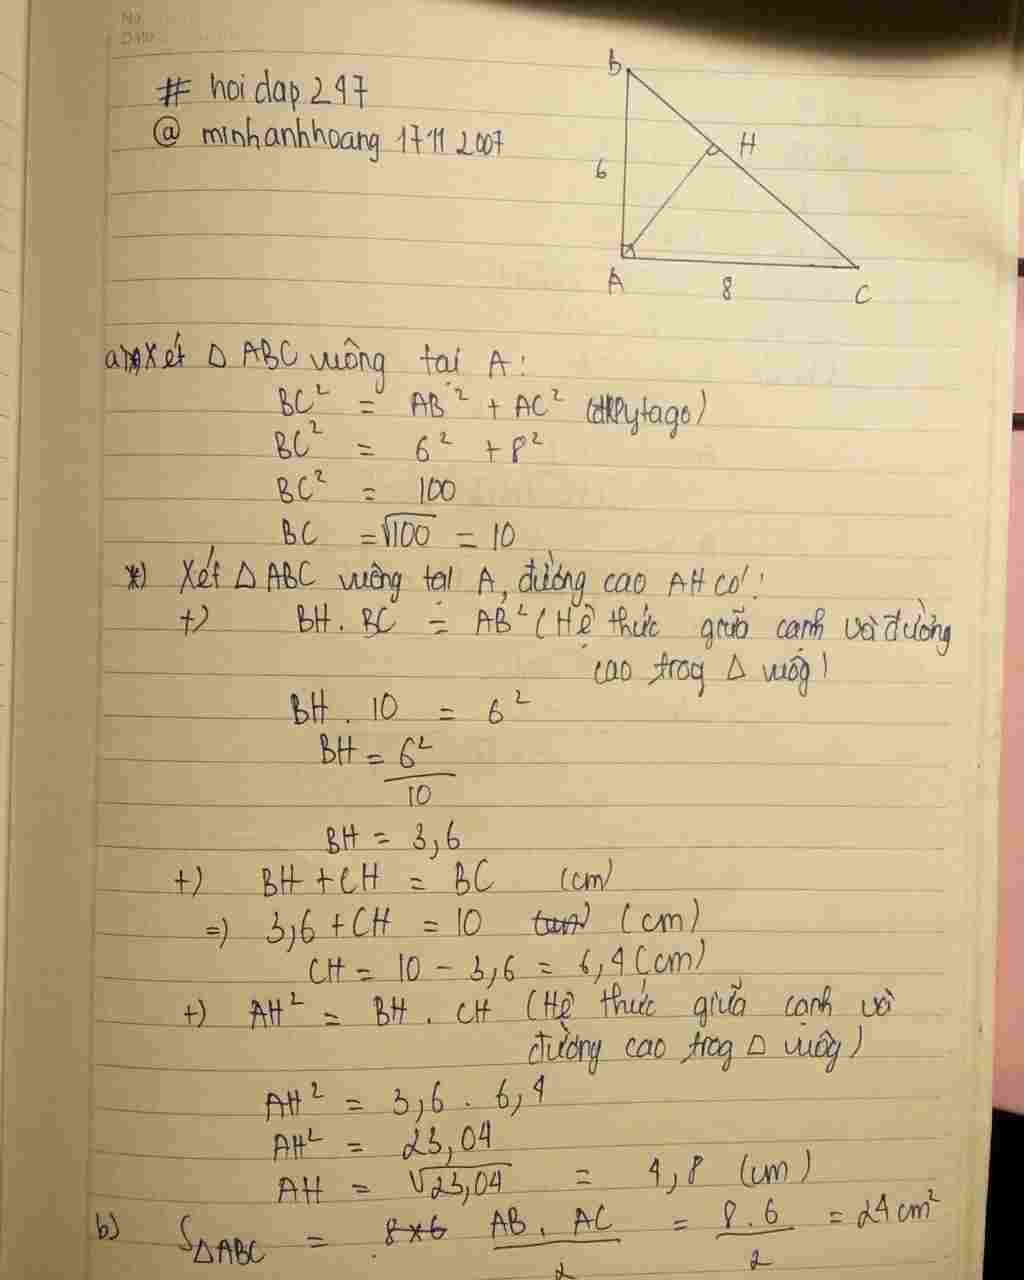 No
Date
# hoi dap 247
@ minhanhhoang 17 11 2007
B
H
6
A
8
C
a) Xét Δ ABC vuông tại A:
BC² = AB² + AC² (đl Pytago)
BC² = 6² + 8²
BC² = 100
BC = √100 = 10
*) Xét Δ ABC vuông tại A, đường cao AH có:
+) BH . BC = AB² (Hệ thức giữa cạnh và đường
cao trog Δ vuôg)
BH . 10 = 6²
BH = 6²/10
BH = 3,6
+) BH + CH = BC (cm)
=) 3,6 + CH = 10 (cm)
CH = 10 - 3,6 = 6,4 (cm)
+) AH² = BH . CH (Hệ thức giữa cạnh và
đường cao trog Δ vuôg)
AH² = 3,6 . 6,4
AH² = 23,04
AH = √23,04 = 4,8 (cm)
b) SΔABC = 8×6 AB . AC/2 = 8 . 6/2 = 24 cm²